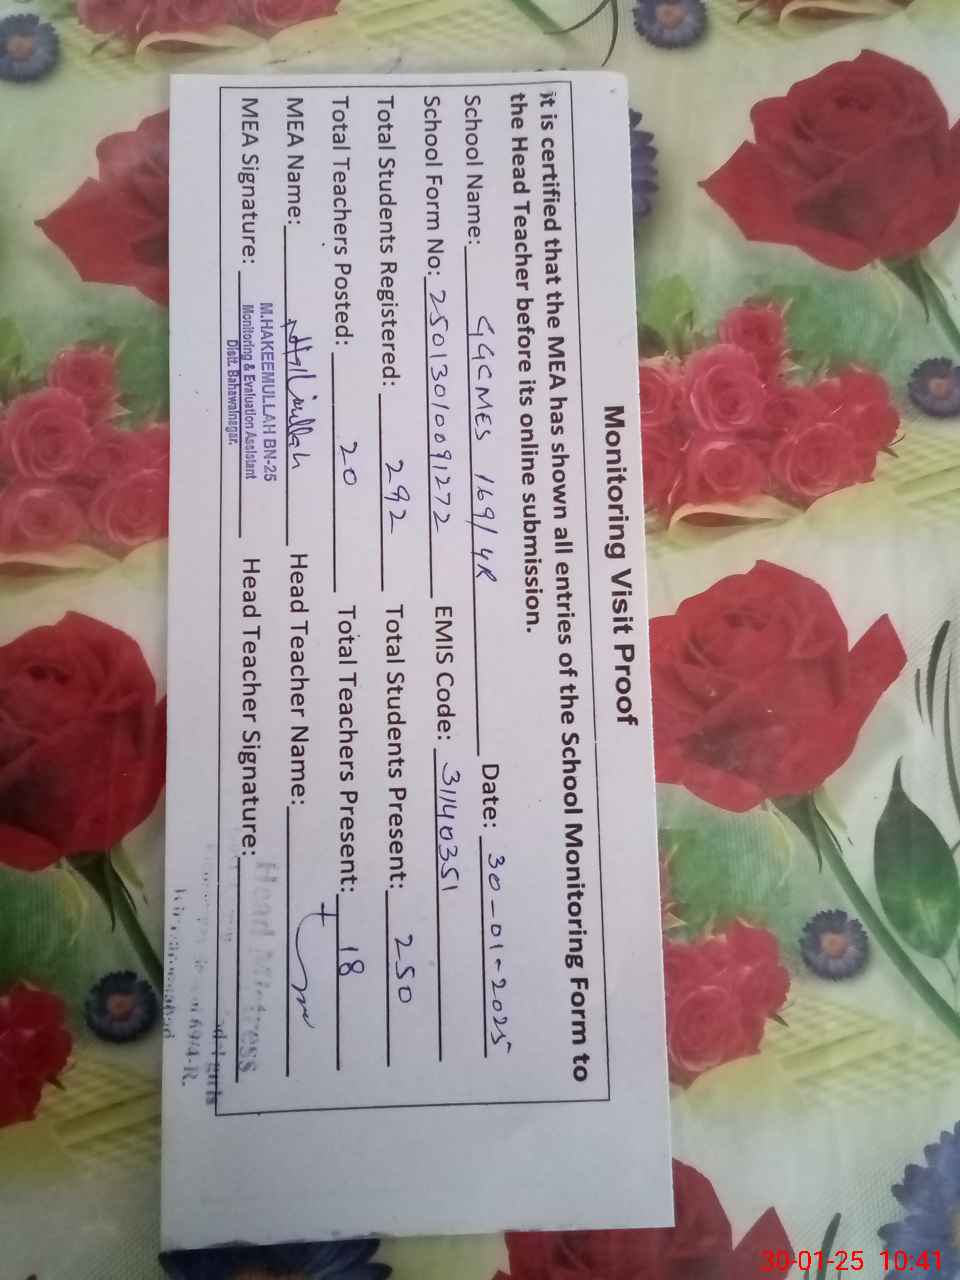 Monitoring Visit Proof
it is certified that the MEA has shown all entries of the School Monitoring Form to
the Head Teacher before its online submission.
School Name: GGCMES 169/4R Date: 30-01-2025
School Form No: 25013010091272 EMIS Code: 31140351
Total Students Registered: 292 Total Students Present: 250
Total Teachers Posted: 20 Total Teachers Present: 18
MEA Name: Head Teacher Name:
M.HAKEEMULLAH BN-25
MEA Signature: Monitoring & Evaluation Assistant Head Teacher Signature: Head Mistress
Distt. Bahawalnagar.
30-01-25 10:41